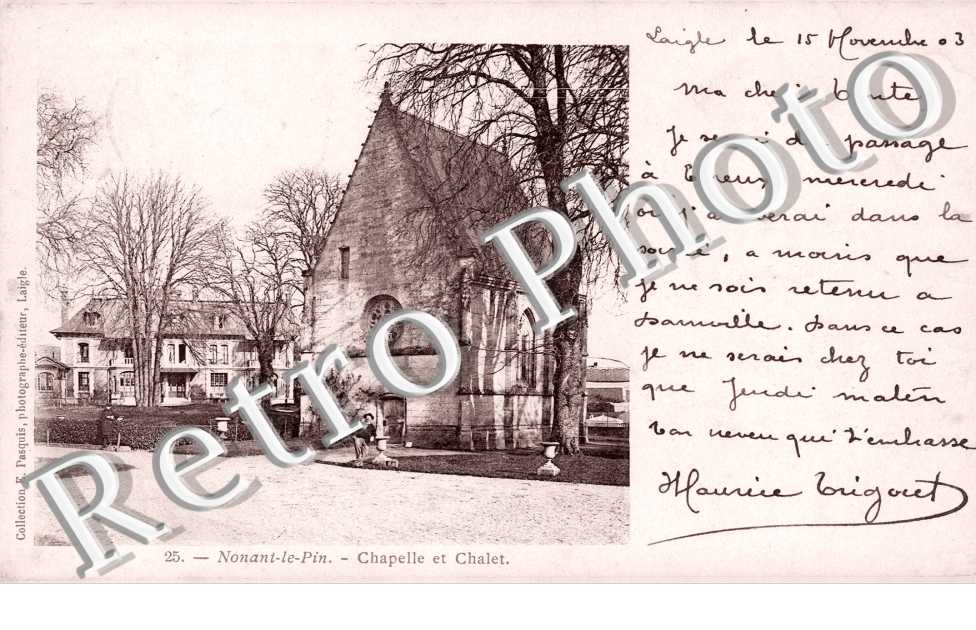 Laigle le 15 Novembre 03
Ma chère Tante
Je serai de passage
à Evreux mercredi
où j'arriverai dans la
soirée, a moins que
je ne sois retenu a
Damville. Dans ce cas
je ne serais chez toi
que Jeudi matin
Ton neveu qui t'embrasse
Maurice Trigoret
Retro Photo
Collection F. Pasquis, photographe-éditeur, Laigle.
25. — Nonant-le-Pin. - Chapelle et Chalet.